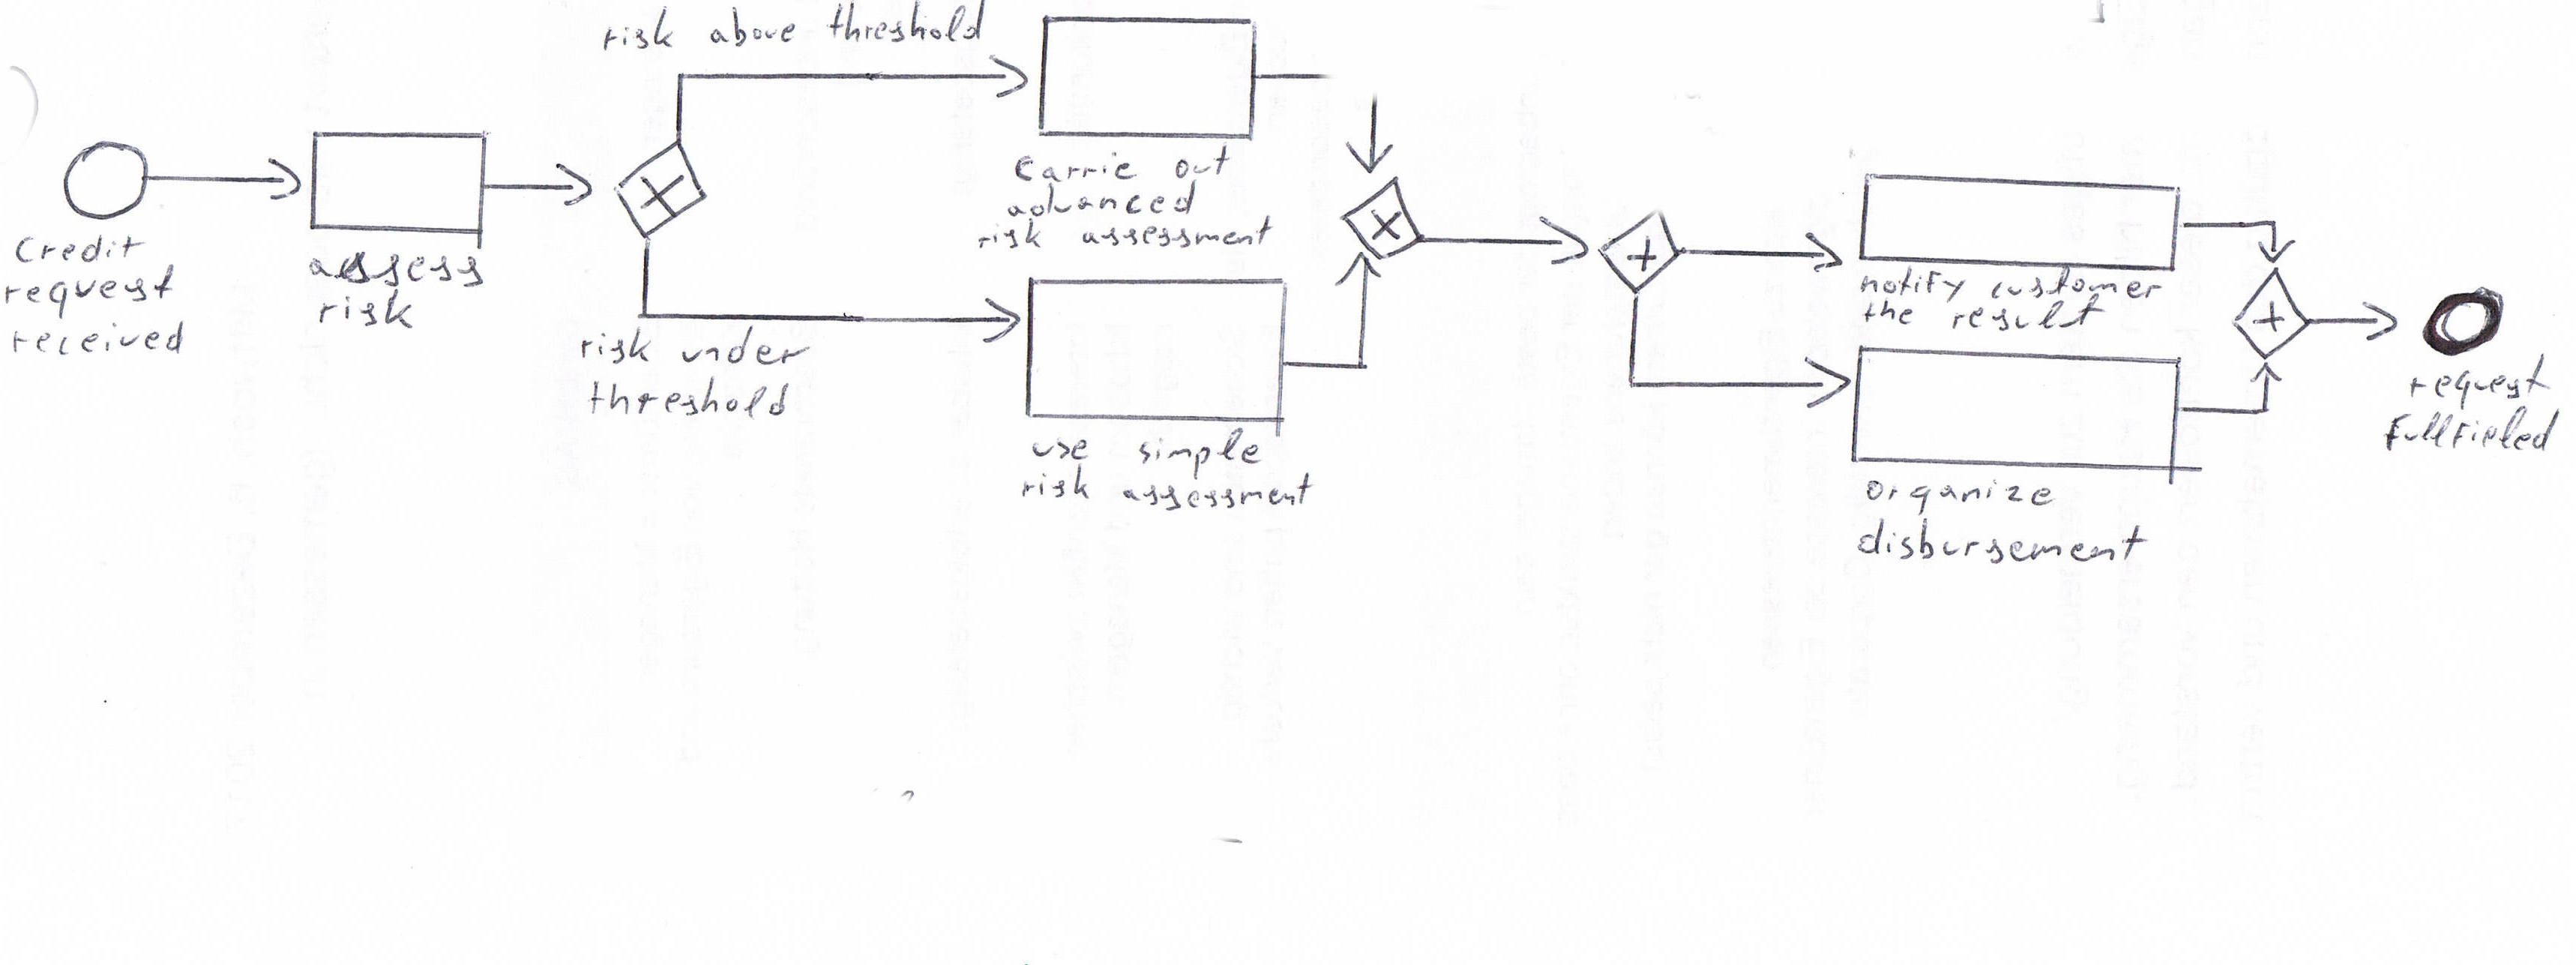 risk above threshold
Credit
request
received
assess
risk
risk under
threshold
carrie out
advanced
risk assessment
use simple
risk assessment
notify customer
the result
organize
disbursement
request
fullfieled